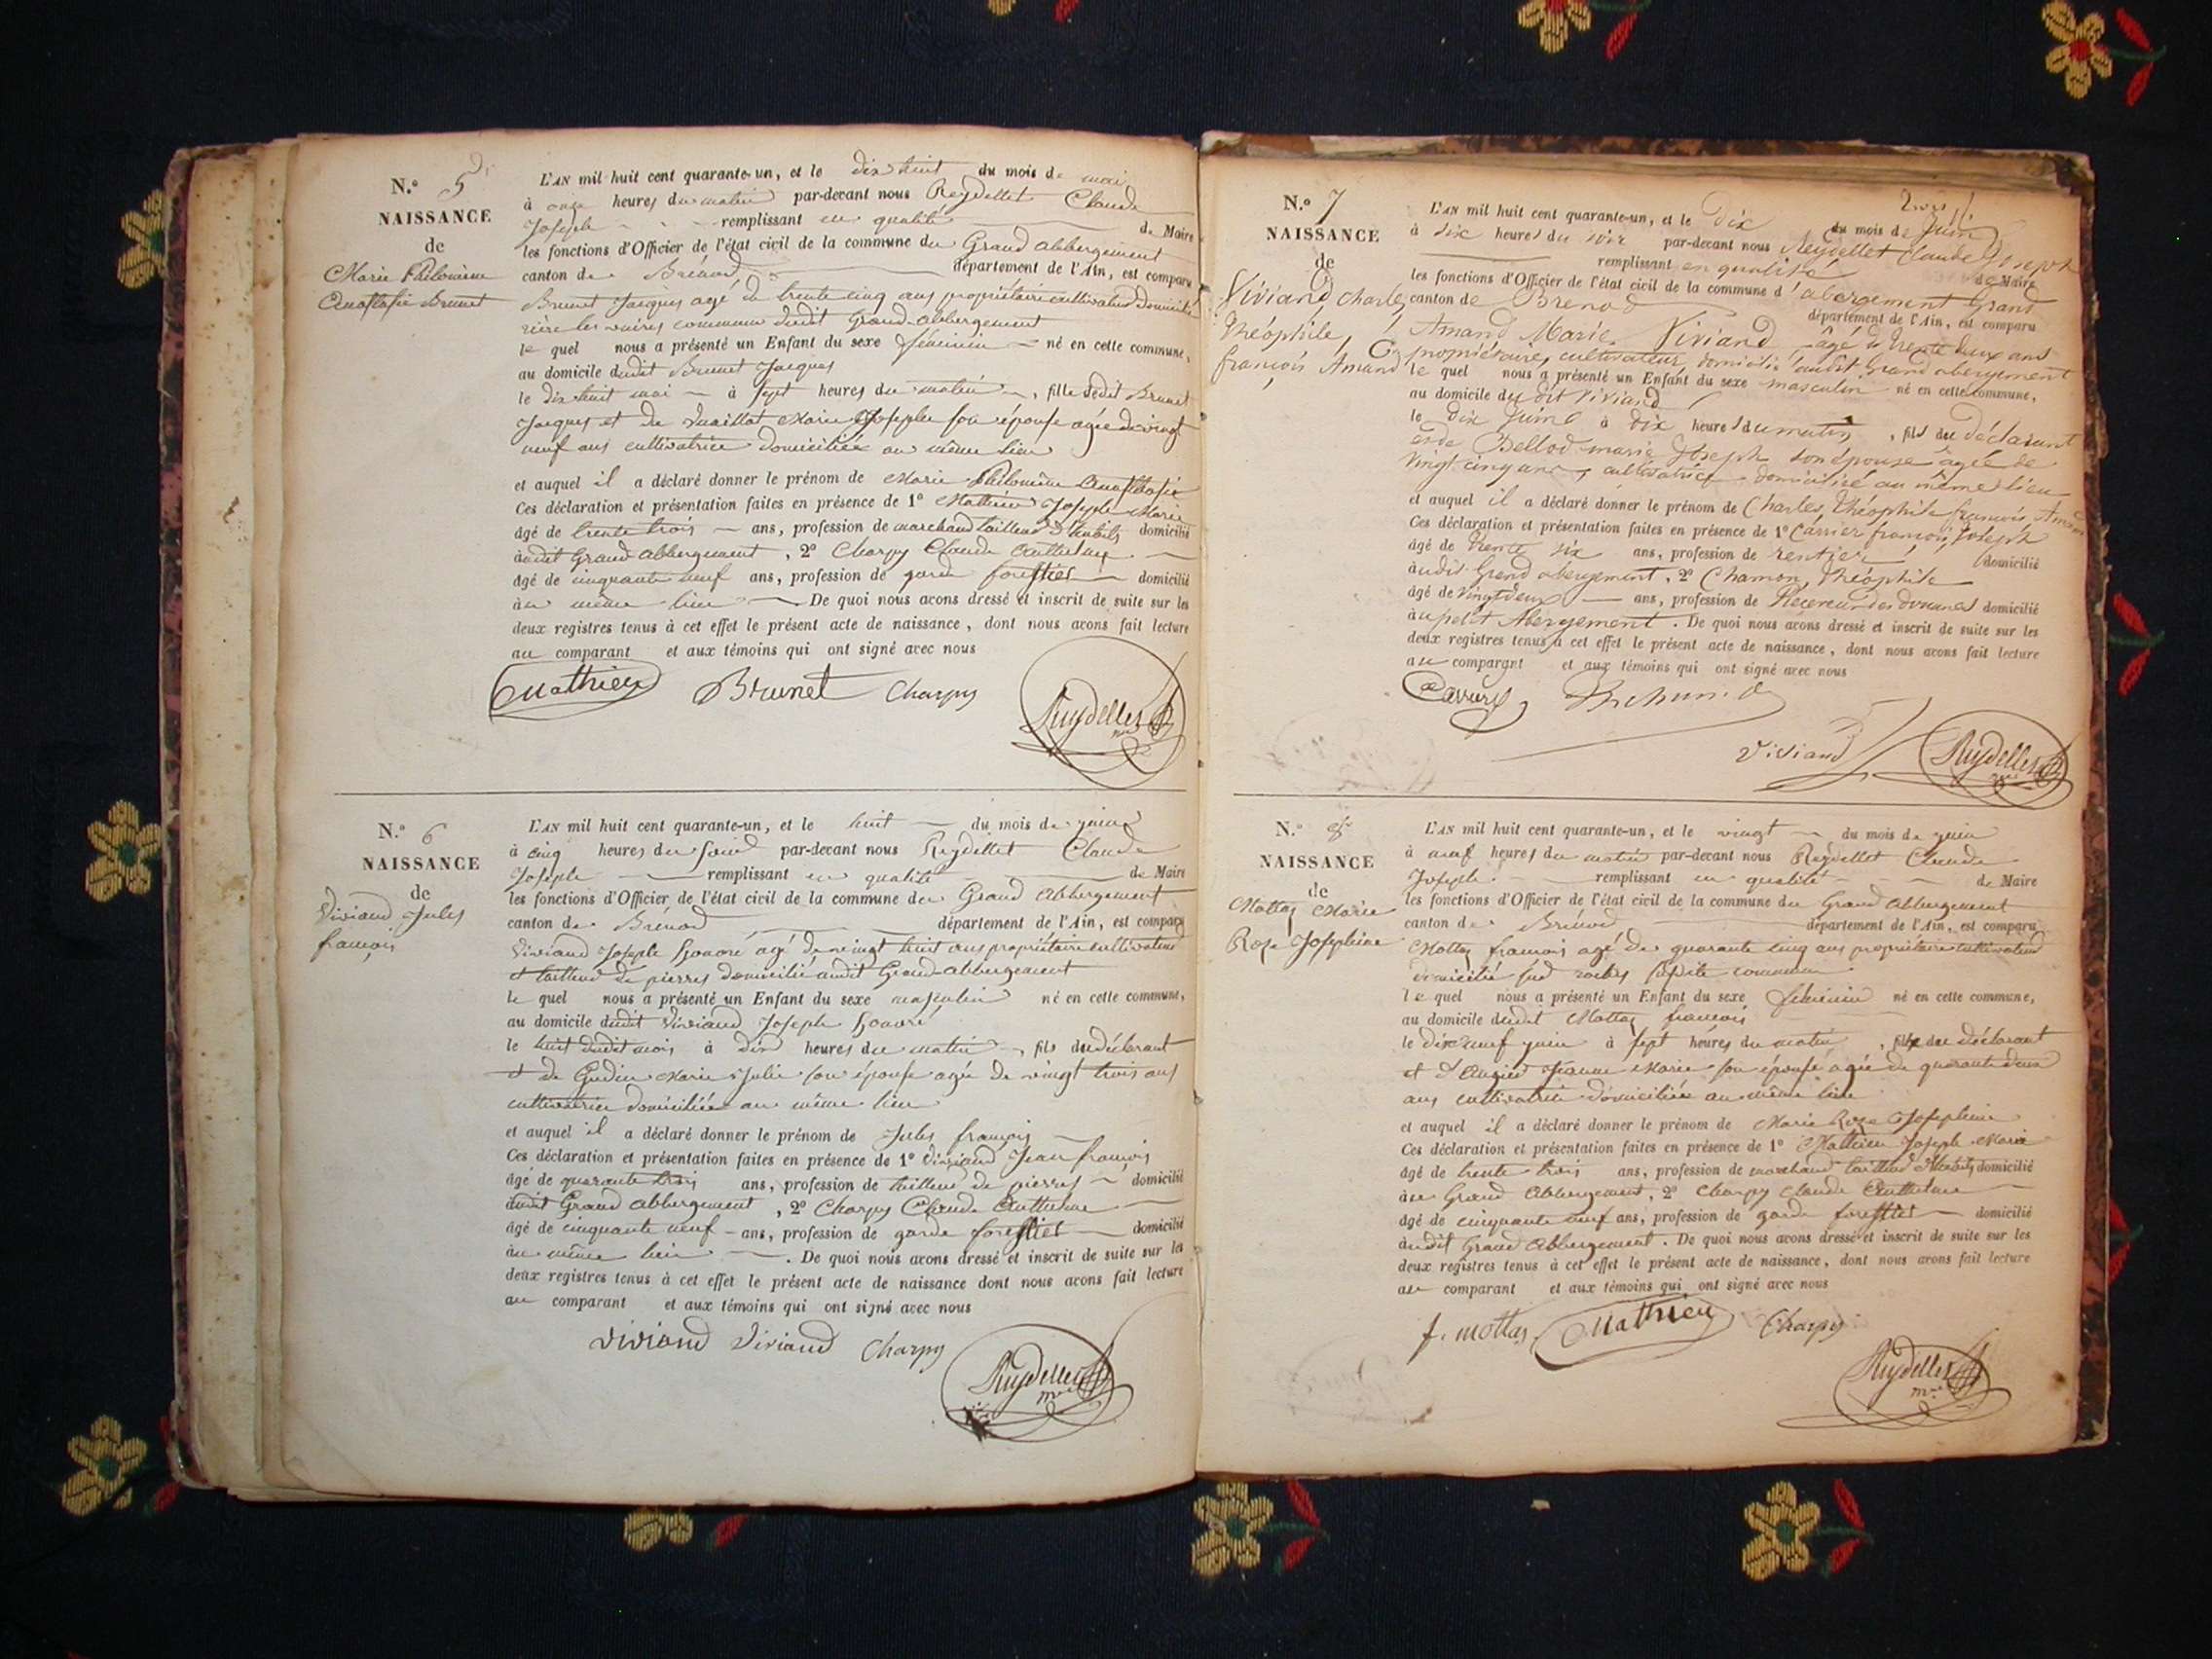 N.° 5
NAISSANCE
de
Marie Philomène
Anastasie Brunet
L'AN mil huit cent quarante-un, et le dix huit du mois de mai
à onze heures du matin par-devant nous Reydellet Claude
Joseph remplissant en qualité de Maire
les fonctions d'Officier de l'état civil de la commune du Grand abbergement
canton de Brénod département de l'Ain, est comparu
Brunet Jacques agé de trente cinq ans propriétaire cultivateur Domicilié
rière les commune dudit Grand-abbergement
le quel nous a présenté un Enfant du sexe féminin né en cette commune,
au domicile dudit Brunet Jacques
le dix huit mai à sept heures du matin, fille dudit Brunet
Jacques et de Marie Josephe son épouse agée de vingt
neuf ans cultivatrice domiciliée au même lieu
et auquel il a déclaré donner le prénom de Marie Philomène Anasthasie
Ces déclaration et présentation faites en présence de 1° Mathieu Joseph Marie
âgé de trente trois ans, profession de marchand tailleur d'habits domicilié
audit Grand abbergement, 2° Charpy Claude Anthelme
âgé de cinquante neuf ans, profession de garde forestier domicilié
au même lieu. De quoi nous avons dressé et inscrit de suite sur les
deux registres tenus à cet effet le présent acte de naissance, dont nous avons fait lecture
au comparant et aux témoins qui ont signé avec nous
Mathieu Brunet Charpy
Reydellet
N.° 6
NAISSANCE
de
Viviand Jules
françois
L'AN mil huit cent quarante-un, et le huit du mois de juin
à cinq heures du soir par-devant nous Reydellet Claude
Joseph remplissant en qualité de Maire
les fonctions d'Officier de l'état civil de la commune du Grand abbergement
canton de Brénod département de l'Ain, est comparu
Viviand Joseph honoré agé de vingt huit ans propriétaire cultivateur
et tailleur de pierres domicilié audit Grand-abbergement
le quel nous a présenté un Enfant du sexe masculin né en cette commune,
au domicile dudit Viviand Joseph honoré
le huit dudit mois à dix heures du matin, fils du déclarant
et de Marie Julie son épouse agée de vingt trois ans
cultivatrice domiciliée au même lieu
et auquel il a déclaré donner le prénom de Jules françois
Ces déclaration et présentation faites en présence de 1° Viviand Jean françois
âgé de quarante trois ans, profession de tailleur de pierres domicilié
audit Grand abbergement, 2° Charpy Claude Anthelme
âgé de cinquante neuf ans, profession de garde forestier domicilié
au même lieu. De quoi nous avons dressé et inscrit de suite sur les
deux registres tenus à cet effet le présent acte de naissance dont nous avons fait lecture
au comparant et aux témoins qui ont signé avec nous
Viviand Viviand Charpy
Reydellet
N.° 7
NAISSANCE
de
Viviand, Charles,
théophile,
françois Amand
L'AN mil huit cent quarante-un, et le Dix du mois de Juin
à six heures du soir par-devant nous Reydellet Claude Joseph
remplissant en qualité de Maire
les fonctions d'Officier de l'état civil de la commune d'abergement Grand
canton de Brenod département de l'Ain, est comparu
Amand Marie Viviand âgé de trente deux ans
propriétaire, cultivateur, domicilié audit Grand abergement
le quel nous a présenté un Enfant du sexe masculin né en cette commune,
au domicile du dit Viviand
le Dix Juin à dix heures du matin, fils du déclarant
et de Bellod marie Joseph son épouse âgée de
vingt cinq ans, cultivatrice domiciliée au même lieu
et auquel il a déclaré donner le prénom de Charles, théophile françois Amand
Ces déclaration et présentation faites en présence de 1° Carrier françois, Joseph
âgé de trente six ans, profession de rentier domicilié
audit Grand abergement, 2° Chamon, théophile
âgé de vingt deux ans, profession de Receveur des douanes domicilié
au petit Abergement. De quoi nous avons dressé et inscrit de suite sur les
deux registres tenus à cet effet le présent acte de naissance, dont nous avons fait lecture
au comparant et aux témoins qui ont signé avec nous
Viviand Reydellet
N.° 8
NAISSANCE
de
Mottas Marie
Rose Josephine
L'AN mil huit cent quarante-un, et le vingt du mois de juin
à neuf heures du matin par-devant nous Reydellet Claude
Joseph remplissant en qualité de Maire
les fonctions d'Officier de l'état civil de la commune du Grand abbergement
canton de Brénod département de l'Ain, est comparu
Mottas françois agé de quarante cinq ans propriétaire cultivateur
domicilié commune
le quel nous a présenté un Enfant du sexe féminin né en cette commune,
au domicile dudit Mottas françois
le dix neuf juin à sept heures du matin, fille du déclarant
et d' Jeanne Marie son épouse agée de quarante deux
ans cultivatrice domiciliée au même lieu
et auquel il a déclaré donner le prénom de Marie Rose Josephine
Ces déclaration et présentation faites en présence de 1° Mathieu Joseph Marie
âgé de trente trois ans, profession de marchand tailleur d'habits domicilié
au Grand Abbergement, 2° Charpy Claude Anthelme
âgé de cinquante neuf ans, profession de garde forestier domicilié
audit Grand Abbergement. De quoi nous avons dressé et inscrit de suite sur les
deux registres tenus à cet effet le présent acte de naissance, dont nous avons fait lecture
au comparant et aux témoins qui ont signé avec nous
f. mottas Mathieu Charpy
Reydellet